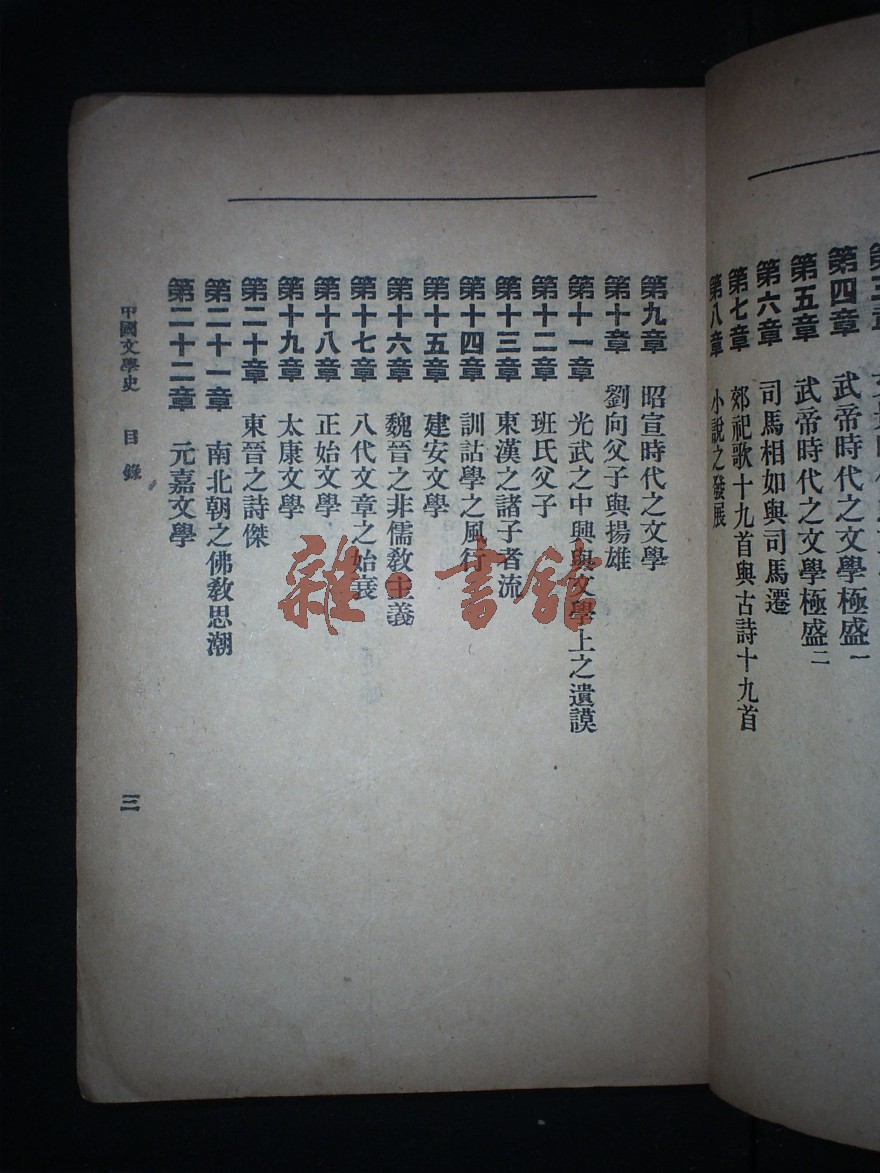 第四章　武帝時代之文學極盛一
第五章　武帝時代之文學極盛二
第六章　司馬相如與司馬遷
第七章　郊祀歌十九首與古詩十九首
第八章　小說之發展
第九章　昭宣時代之文學
第十章　劉向父子與揚雄
第十一章　光武之中興與文學上之遺謨
第十二章　班氏父子
第十三章　東漢之諸子者流
第十四章　訓詁學之風行
第十五章　建安文學
第十六章　魏晉之非儒教主義
第十七章　八代文章之始衰
第十八章　正始文學
第十九章　太康文學
第二十章　東晉之詩傑
第二十一章　南北朝之佛教思潮
第二十二章　元嘉文學
中國文學史　目錄
三
雜·書館